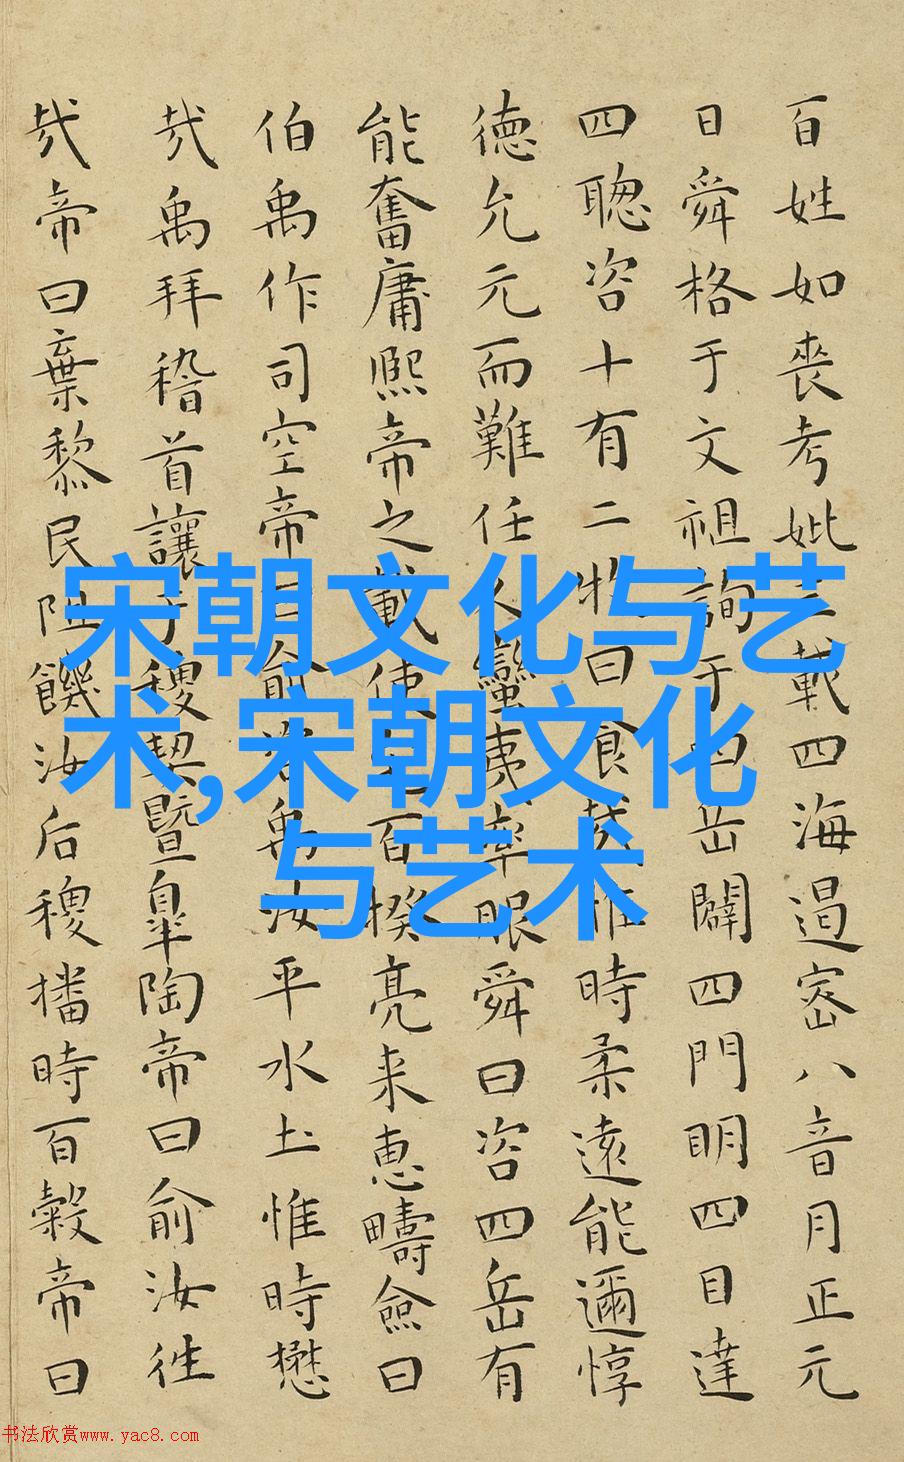 百姓如喪考妣三載四海遏密八音月正元
日舜格于文祖詢于四岳闢四門明四目達
四聦咨十有二牧曰食哉惟時柔遠能邇惇
德允元而難任人蠻夷率服舜曰咨四岳有
能奮庸熙帝之載使宅百揆亮来惠疇僉曰
伯禹作司空帝曰俞咨禹汝平水土惟時懋
哉禹拜稽首讓于稷契暨皐陶帝曰俞汝往
哉帝曰棄黎民阻饑汝后稷播時百穀帝曰
宋朝文化与艺
术,宋朝文化
与艺术
书法欣赏www.yac8.com